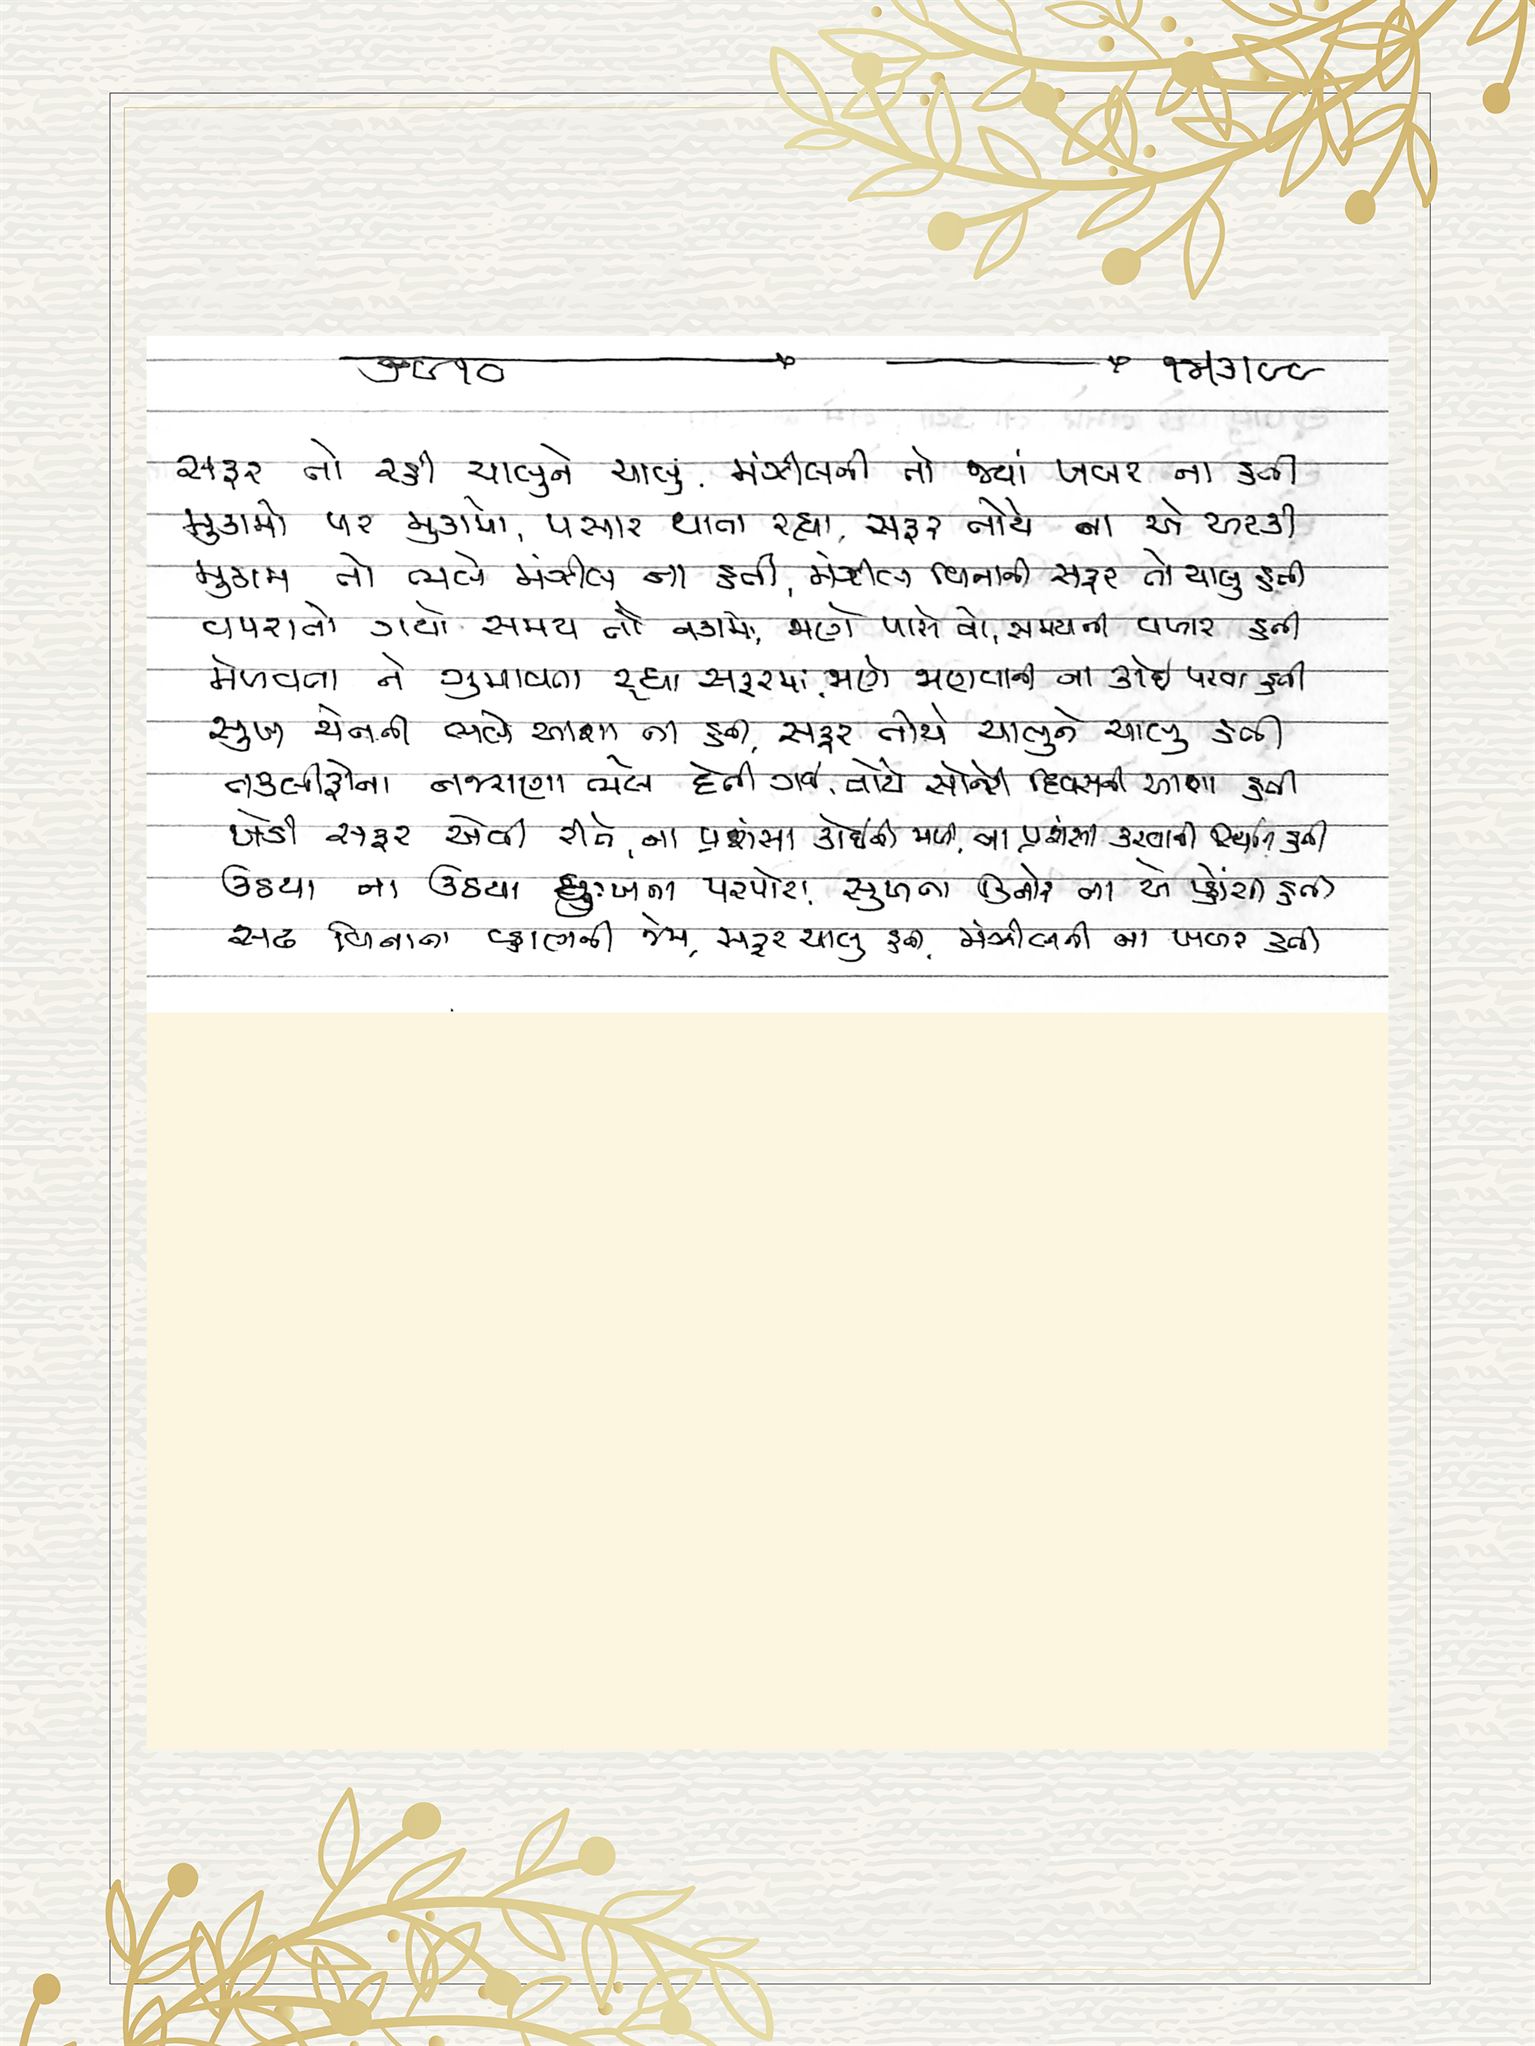 ૭૯૧૦ ૧૫/૩/૯૯
સફર તો રહી ચાલુને ચાલુ, મંઝીલની તો જ્યાં ખબર ના હતી
મુકામો પર મુકામો, પસાર થાતા રહ્યા, સફર તોયે ના એ અટકી
મુકામ તો ભલે મંઝીલ ના હતી, મંઝીલ વિનાની સફર તો ચાલુ હતી
વપરાતો ગયો સમય તો નકામો, જાણે પાસે તો, સમયની વણઝાર હતી
મેળવતા ને ગુમાવતા રહ્યા સફરમાં, જાણે જાણવાની ના કોઈ પરવા હતી
સુખ ચેનની ભલે આશા ના હતી, સફર તોયે ચાલુને ચાલુ હતી
તકલીફોના નજરાણા ભલે દેતી ગઈ, તોયે સોનેરી દિવસની આશા હતી
ખેડી સફર એવી રીતે, ના પ્રશંસા કોઈની મળી, ના પ્રશંસા કરવાની સ્થિતિ હતી
ઉઠયા ના ઉઠયા દુઃખના પરપોટા, સુખના કિનારે ના એ પહોંચી હતી
સઢ વિનાના વ્હાણની જેમ, સફર ચાલુ હતી, મંઝીલની ના ખબર હતી